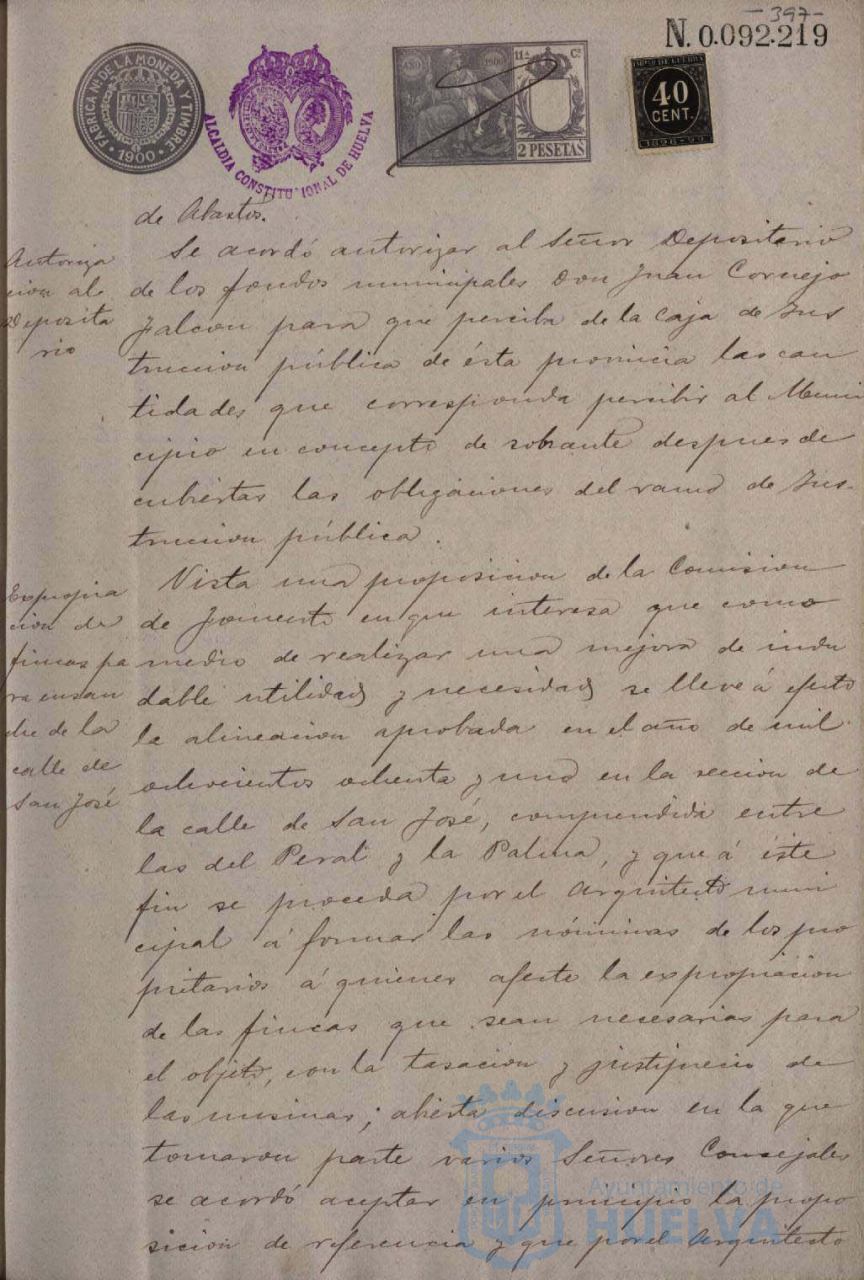 -397-
N. 0.092.219
FABRICA NL. DE LA MONEDA Y TIMBRE
· 1900 ·
ALCALDIA CONSTITUCIONAL DE HUELVA
AÑO 1900
11ª Cª
2 PESETAS
IMPTO DE GUERRA
40
CENT.
1898-99
de Abastos.
Autoriza
cion al
Deposita
rio
Se acordó autorizar al Señor Depositario
de los fondos municipales Don Juan Cornejo
Falcon para que perciba de la Caja de Ins
truccion pública de ésta provincia las can
tidades que corresponda percibir al Muni
cipio en concepto de sobrante despues de
cubiertas las obligaciones del ramo de Ins-
truccion pública.
Expropia
cion de
fincas pa
ra ensan
che de la
calle de
San José
Vista una proposicion de la Comision
de Fomento en que interesa que como
medio de realizar una mejora de indu
dable utilidad y necesidad se lleve á efecto
la alineacion aprobada en el año de mil
ochocientos ochenta y uno en la seccion de
la calle de San José, comprendida entre
las del Peral y la Palma, y que á éste
fin se proceda por el Arquitecto muni
cipal á formar las nóminas de los pro
pietarios á quienes afecte la expropiacion
de las fincas que sean necesarias para
el objeto, con la tasacion y justiprecio de
las mismas; abierta discusion en la que
tomaron parte varios Señores Concejales
se acordó aceptar en principio la propo
sicion de referencia y que por el Arquitecto
Ayuntamiento de
HUELVA